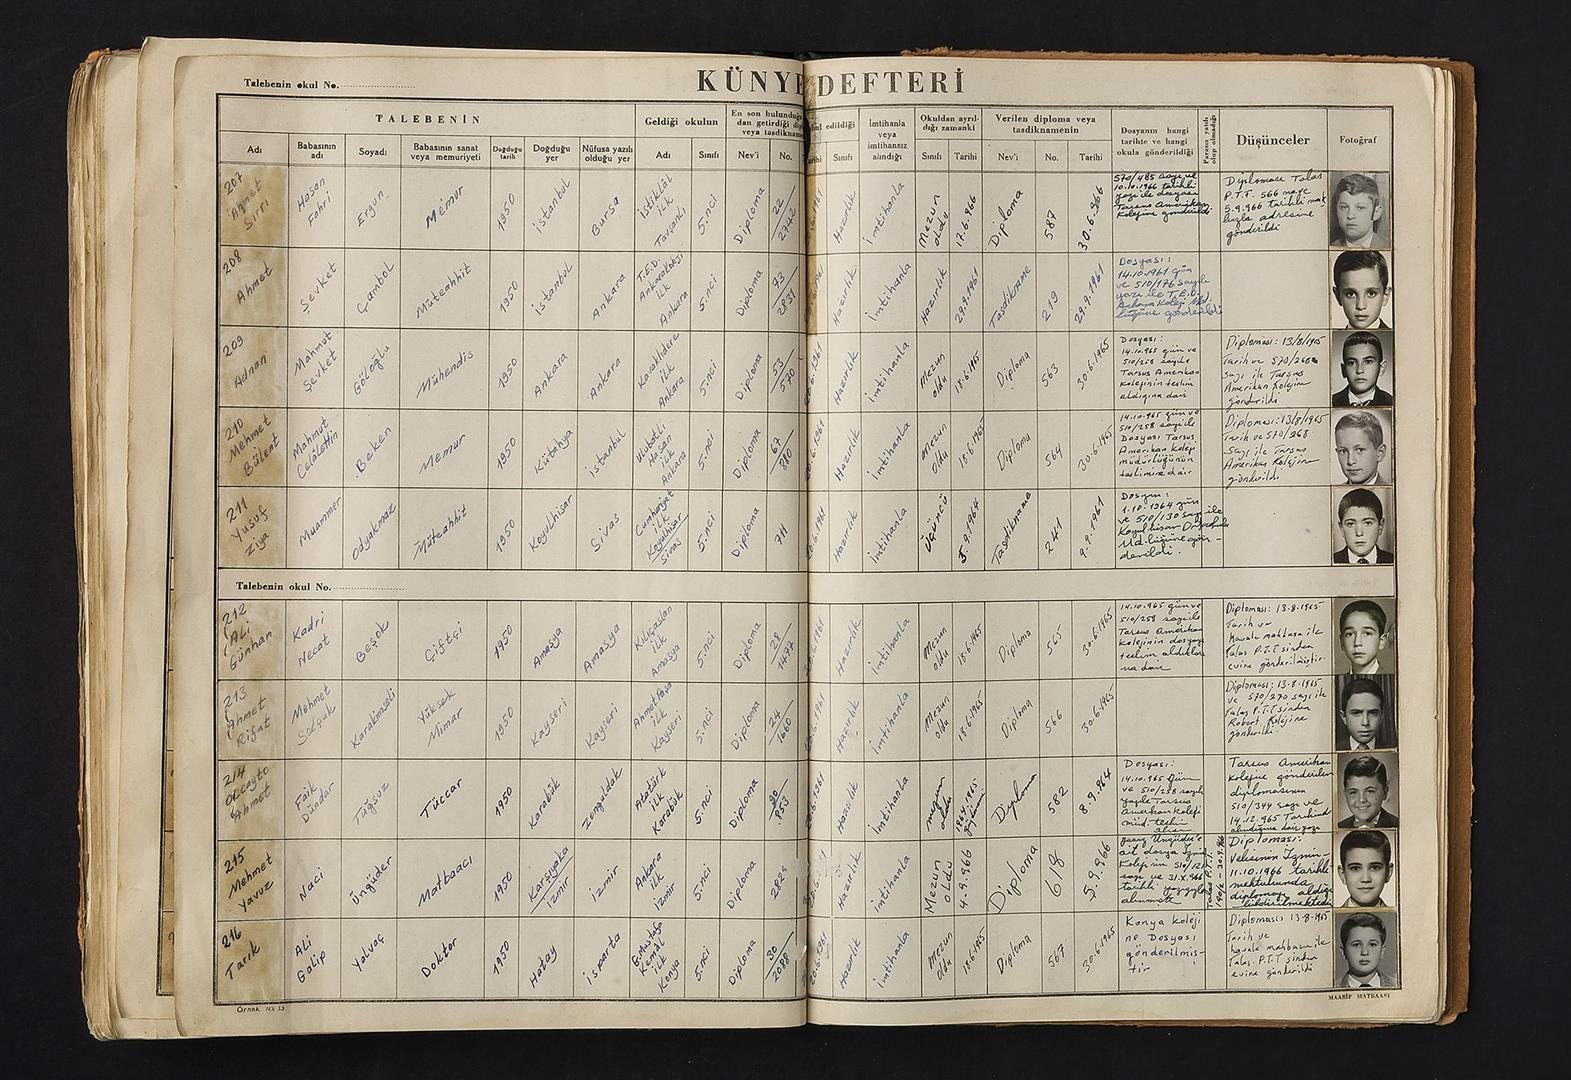 Talebenin okul No.
KÜNYE DEFTERİ
TALEBENİN
Geldiği okulun
En son bulunduğu
dan getirdiği
veya tasdikname
edildiği
İmtihanla
veya
imtihansız
alındığı
Okuldan ayrıl-
dığı zamanki
Verilen diploma veya
tasdiknamenin
Dosyanın hangi
tarihte ve hangi
okula gönderildiği
Düşünceler
Fotoğraf
Adı
Babasının
adı
Soyadı
Babasının sanat
veya memuriyeti
Doğduğu
tarih
Doğduğu
yer
Nüfusa yazılı
olduğu yer
Adı
Sınıfı
Nev'i
No.
Sınıfı
Sınıfı
Tarihi
Nev'i
No.
Tarihi
207
Ahmet
Sırrı
Hasan
Fahri
Ergun
Memur
1950
İstanbul
Bursa
İstiklâl
İlk
Tavşanlı
5.nci
Diploma
22
2742
Hazırlık
İmtihanla
Mezun
oldu
17.6.966
Diploma
587
30.6.966
570/485 sayı ve
10.10.1966 tarihli
yazı ile dosyası
Tarsus Amerikan
Kolejine gönderildi
Diploması Talas
P.T.T. 566 no ve
5.9.966 tarihli mak
buzla adresine
gönderildi
208
Ahmet
Şevket
Çambol
Müteahhit
1950
İstanbul
Ankara
T.E.D.
Ankara Koleji
İlk
Ankara
5.nci
Diploma
73
2831
Hazırlık
İmtihanla
Hazırlık
29.9.1961
Tasdikname
219
29.9.1961
Dosyası:
14.10.1961 gün
ve 510/176 sayılı
yazı ile T.E.D.
Ankara Koleji Md.
lüğüne gönderildi
209
Adnan
Mahmut
Şevket
Göloğlu
Mühendis
1950
Ankara
Ankara
Kavaklıdere
İlk
Ankara
5.nci
Diploma
53
570
Hazırlık
İmtihanla
Mezun
oldu
18.6.1965
Diploma
563
30.6.1965
Dosyası:
14.10.965 gün ve
510/258 sayıile
Tarsus Amerikan
kolejinin teslim
aldığına dair
Diploması: 13/8/1965
Tarih ve 570/268
Sayı ile Tarsus
Amerikan Kolejine
gönderildi
210
Mehmet
Bülent
Mahmut
Celâlettin
Beken
Memur
1950
Kütahya
İstanbul
Ulubatlı
Hasan
İlk
Ankara
5.nci
Diploma
67
280
Hazırlık
İmtihanla
Mezun
oldu
18.6.1965
Diploma
564
30.6.1965
14.10.965 gün ve
510/258 sayı ile
Dosyası Tarsus
Amerikan koleji
müdürlüğünün
teslimine dair
Diploması: 13/8/1965
Tarih ve 570/268
Sayı ile Tarsus
Amerikan Kolejine
gönderildi
211
Yusuf
Ziya
Muammer
Odyakmaz
Müteahhit
1950
Koyulhisar
Sivas
Cumhuriyet
İlk
Koyulhisar
Sivas
5.nci
Diploma
711
Hazırlık
İmtihanla
Üçüncü
9.1964
Tasdikname
241
9.9.1961
Dosyası:
1.10.1964 gün
ve 510/130 sayı ile
Koyulhisar Ortaokulu
Md.lüğüne gön-
derildi.
Talebenin okul No.
212
Ali
Günhan
Kadri
Necat
Beşok
Çiftçi
1950
Amasya
Amasya
Kılıçaslan
İlk
Amasya
5.nci
Diploma
28
1497
Hazırlık
İmtihanla
Mezun
oldu
18.6.1965
Diploma
565
30.6.1965
14.10.965 gün ve
510/258 sayı ile
Tarsus Amerikan
kolejinin dosyayı
teslim aldıkları
na dair
Diploması: 13-8-1965
Tarih ve
Havale mahbuzu ile
Talas P.T.T sinden
evine gönderilmiştir.
213
Ahmet
Rifat
Mehmet
Selçuk
Karakimseli
Yüksek
Mimar
1950
Kayseri
Kayseri
Ahmet Paşa
İlk
Kayseri
5.nci
Diploma
24
1660
Hazırlık
İmtihanla
Mezun
oldu
18.6.1965
Diploma
566
30.6.1965
Diploması: 13-8-1965
ve 570/270 sayı ile
Talas P.T.T sinden
Robert Kolejine
gönderildi.
214
Olcayto
Ahmet
Faik
Dündar
Tüğsuz
Tüccar
1950
Karabük
Zonguldak
Atatürk
İlk
Karabük
5.nci
Diploma
20
853
Hazırlık
İmtihanla
mezun
oldu
Diploma
582
8.9.964
Dosyası:
14.10.965 gün
ve 510/258 sayılı
yazıyla Tarsus
Amerikan koleji
müd. teslim
alan
Tarsus Amerikan
kolejine gönderilen
diplomasının
510/344 sayı ve
14.12.965 Tarihinde
alındığına dair yazı
215
Mehmet
Yavuz
Naci
Üngüder
Matbaacı
1950
Karşıyaka
İzmir
İzmir
Ankara
İlk
İzmir
5.nci
Diploma
2825
Hazırlık
İmtihanla
Mezun
oldu
4.9.966
Diploma
618
5.9.966
Yavuz Üngüder'e
ait dosya İzmir
Koleji'nin 510/121
sayı ve 31.X.966
tarihli yazıyla
alınmıştı
Talas P.T.T.
Diploması:
Velisinin İzmir-
11.10.1966 tarihli
mektubunda
diplomayı aldığı
bildirilmektedir
216
Tarık
Ali
Galip
Yalvaç
Doktor
1950
Hatay
Isparta
E. Mustafa
Kemal
İlk
Konya
5.nci
Diploma
30
2088
Hazırlık
İmtihanla
Mezun
oldu
18.6.1965
Diploma
567
30.6.1965
Konya koleji
ne Dosyası
gönderilmiş-
tir
Diploması 13-8-1965
Tarih ve
havale mahbuzu ile
Talas P.T.T sinden
evine gönderildi
Örnek No 13
MAARİF MATBAASI